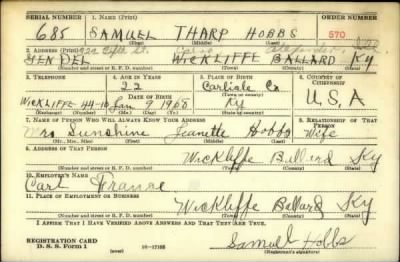 SERIAL NUMBER 1. NAME (Print) ORDER NUMBER
685 SAMUEL THARP HOBBS 570
(First) (Middle) (Last)
2. ADDRESS (Print)
Cairo Alexander
YEN DEL WICKLIFFE BALLARD Ky
(Number and street or R. F. D. number) (Town) (County) (State)
3. TELEPHONE 4. AGE IN YEARS 5. PLACE OF BIRTH 6. COUNTRY OF CITIZENSHIP
22 Carlisle Co
DATE OF BIRTH (Town or county)
WICKLIFFE 44-10 Jan 9 1908 Ky U.S.A
(Exchange) (Number) (Mo.) (Day) (Yr.) (State or country)
7. NAME OF PERSON WHO WILL ALWAYS KNOW YOUR ADDRESS 8. RELATIONSHIP OF THAT PERSON
Mrs Sunshine Jeanette Hobbs Wife
(Mr., Mrs., Miss) (First) (Middle) (Last)
9. ADDRESS OF THAT PERSON
Wickliffe Ballard Ky
(Number and street or R. F. D. number) (Town) (County) (State)
10. EMPLOYER'S NAME
Carl
11. PLACE OF EMPLOYMENT OR BUSINESS
Wickliffe Ballard Ky
(Number and street or R. F. D. number) (Town) (County) (State)
I AFFIRM THAT I HAVE VERIFIED ABOVE ANSWERS AND THAT THEY ARE TRUE.
REGISTRATION CARD
D. S. S. Form 1 16-17105 Samuel Hobbs
(Registrant's signature)